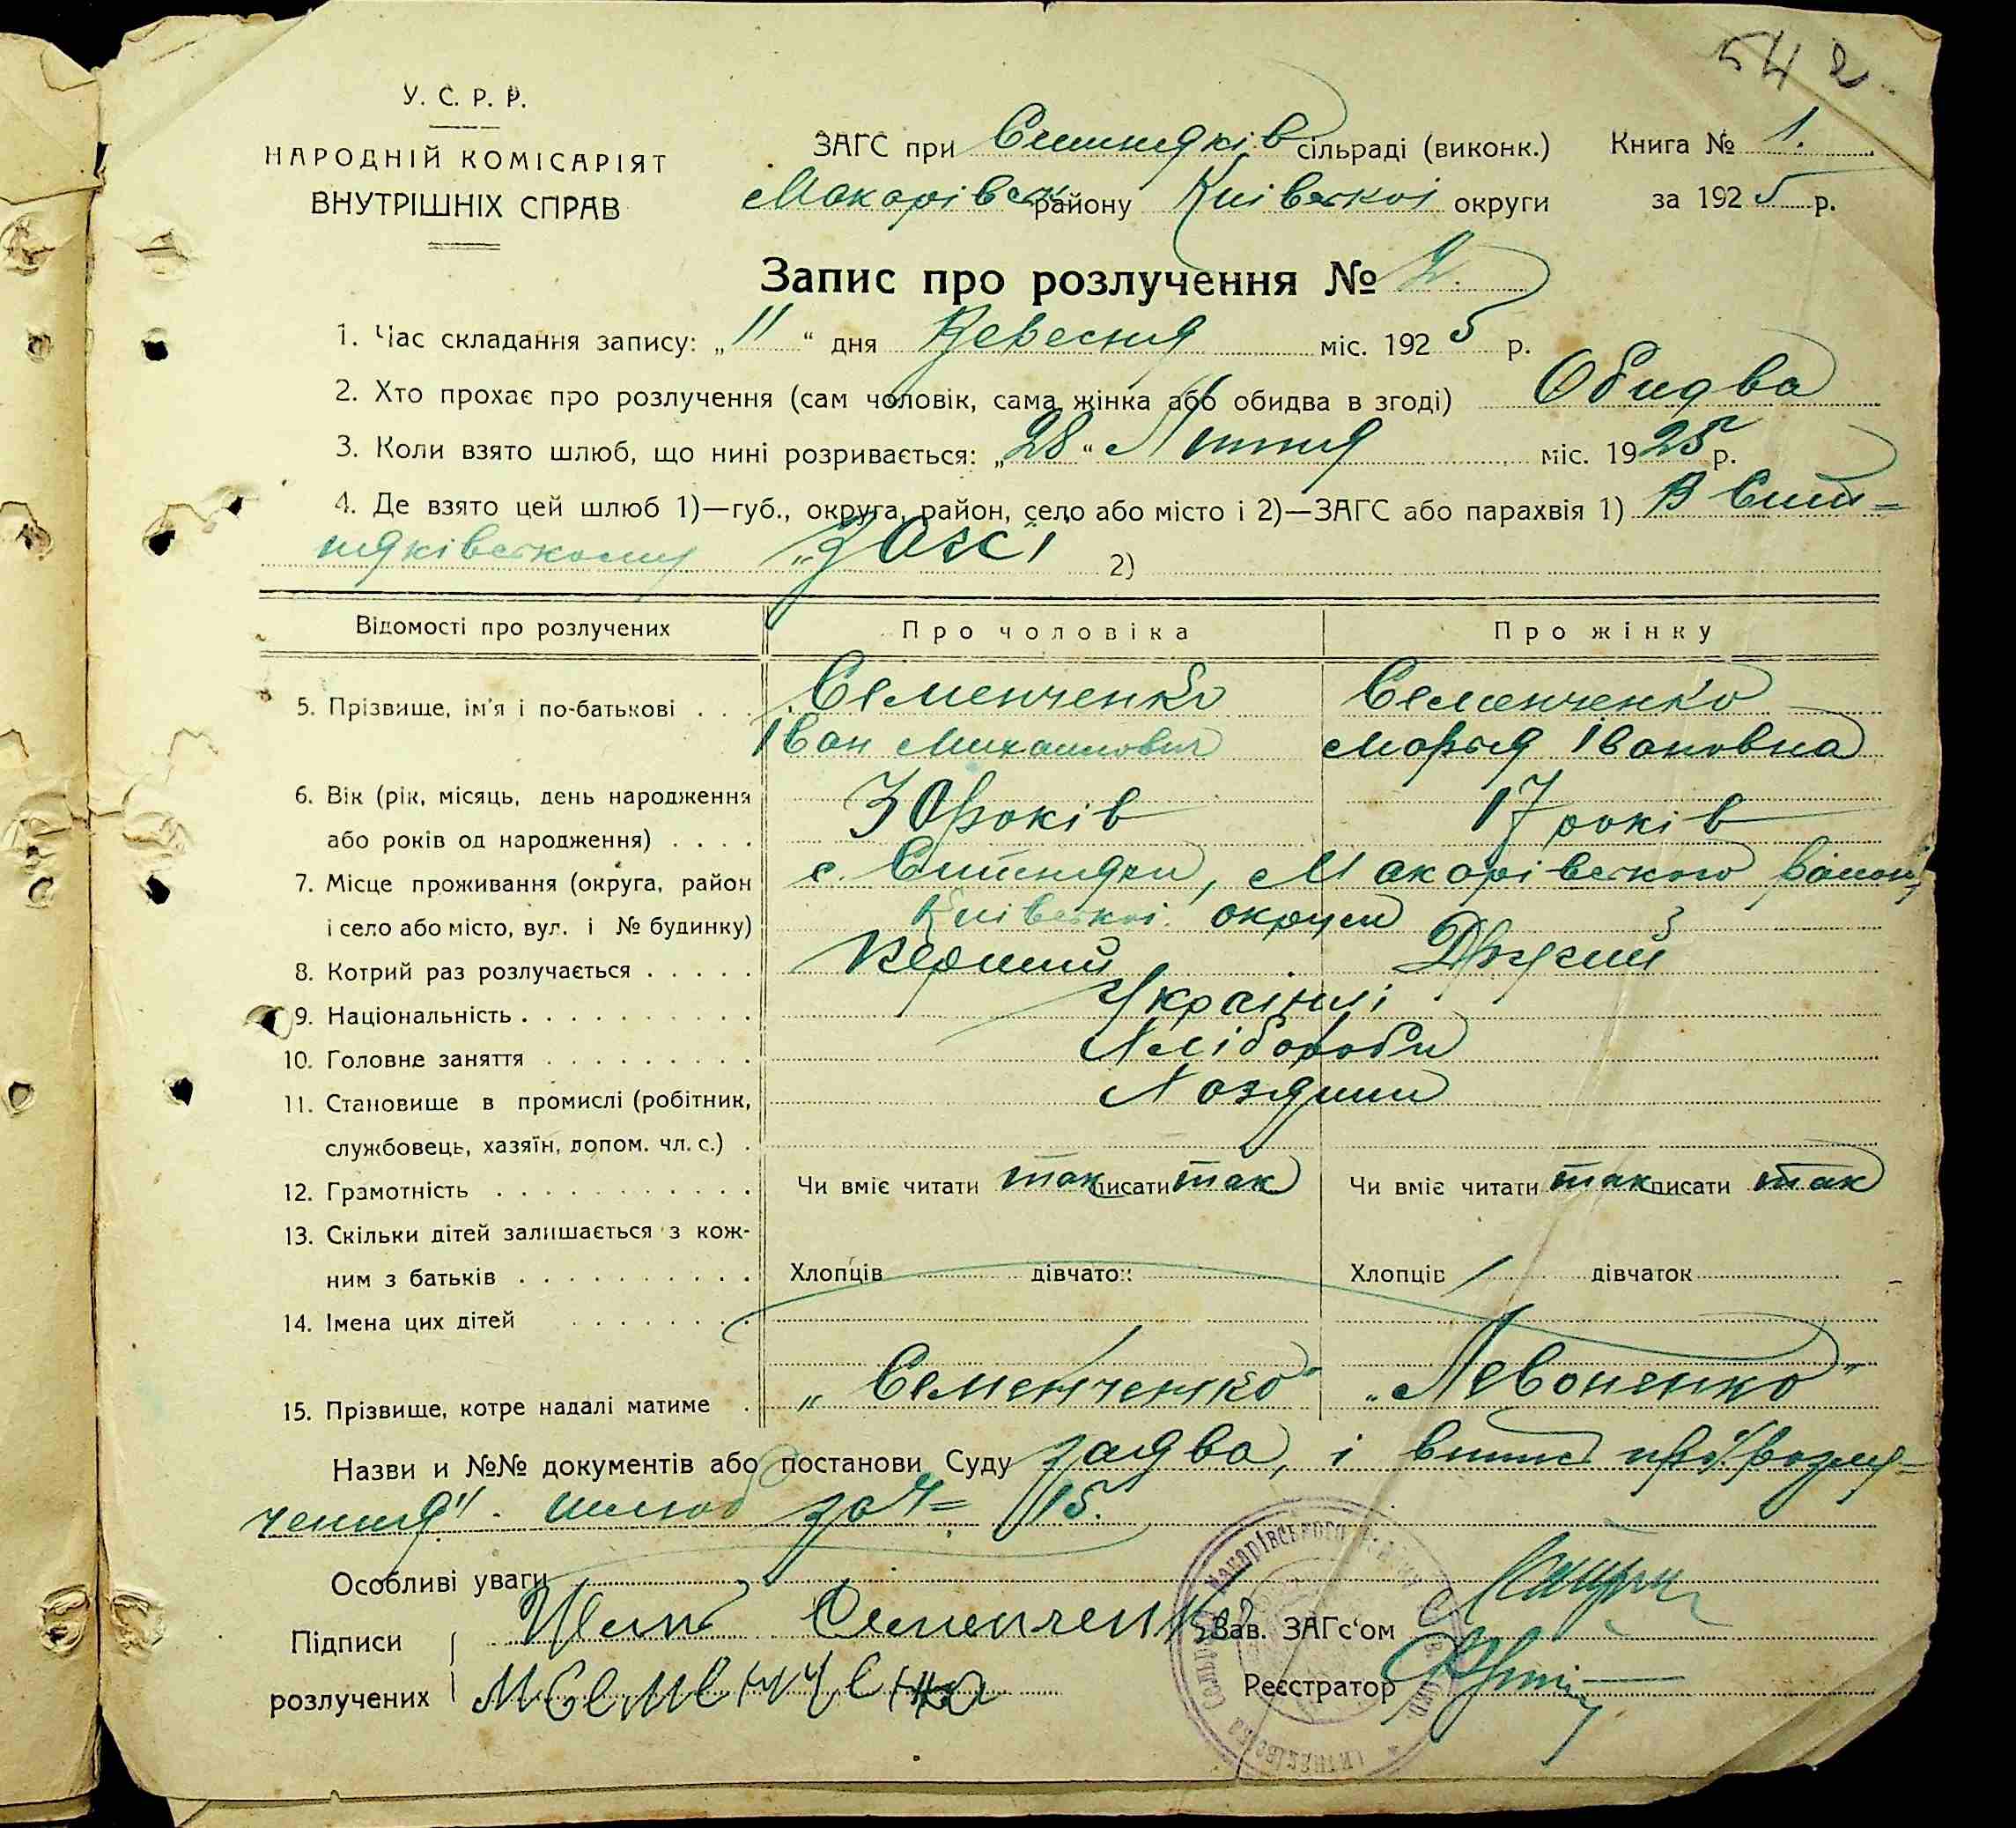 542
У. С. Р. Р.
НАРОДНІЙ КОМІСАРІЯТ
ВНУТРІШНІХ СПРАВ
ЗАГС при Ситняків сільраді (виконк.) Книга № 1.
Макарівськ району Київської округи за 1925 р.
Запис про розлучення № 2.
1. Час складання запису: „11“ дня Вересня міс. 1925 р.
2. Хто прохає про розлучення (сам чоловік, сама жінка або обидва в згоді) Обидва
3. Коли взято шлюб, що нині розривається: „28“ Липня міс. 1925 р.
4. Де взято цей шлюб 1)—губ., округа, район, село або місто і 2)—ЗАГС або парахвія 1) В Сит-
няківському „Загсі 2)
Відомості про розлучених Про чоловіка Про жінку
5. Прізвище, ім'я і по-батькові . . . Семенченко Семенченко
Іван Михаилович Марыя Івановна
6. Вік (рік, місяць, день народження
або років од народження) . . . . 30 років 17 років
7. Місце проживання (округа, район с. Ситняки, Макарівського району
і село або місто, вул. і № будинку) Київської округи
8. Котрий раз розлучається . . . . . Перший Другий
9. Національність . . . . . . . . . . Українці
10. Головне заняття . . . . . . . . . Хлібороби
11. Становище в промислі (робітник, Хозяини
службовець, хазяїн, допом. чл. с.) .
12. Грамотність . . . . . . . . . . . Чи вміє читати так писати так Чи вміє читати так писати так
13. Скільки дітей залишається з кож-
ним з батьків . . . . . . . . . . Хлопців дівчаток Хлопців / дівчаток
14. Імена цих дітей . . . . . . .
15. Прізвище, котре надалі матиме . „Семенченко" „Левоненко"
Назви и №№ документів або постанови Суду заява, і витяг про розлу-
чення". шлюб за Ч= 15.
Особливі уваги
Підписи Семенченко Зав. ЗАГс'ом
розлучених МСеменченко Реєстратор